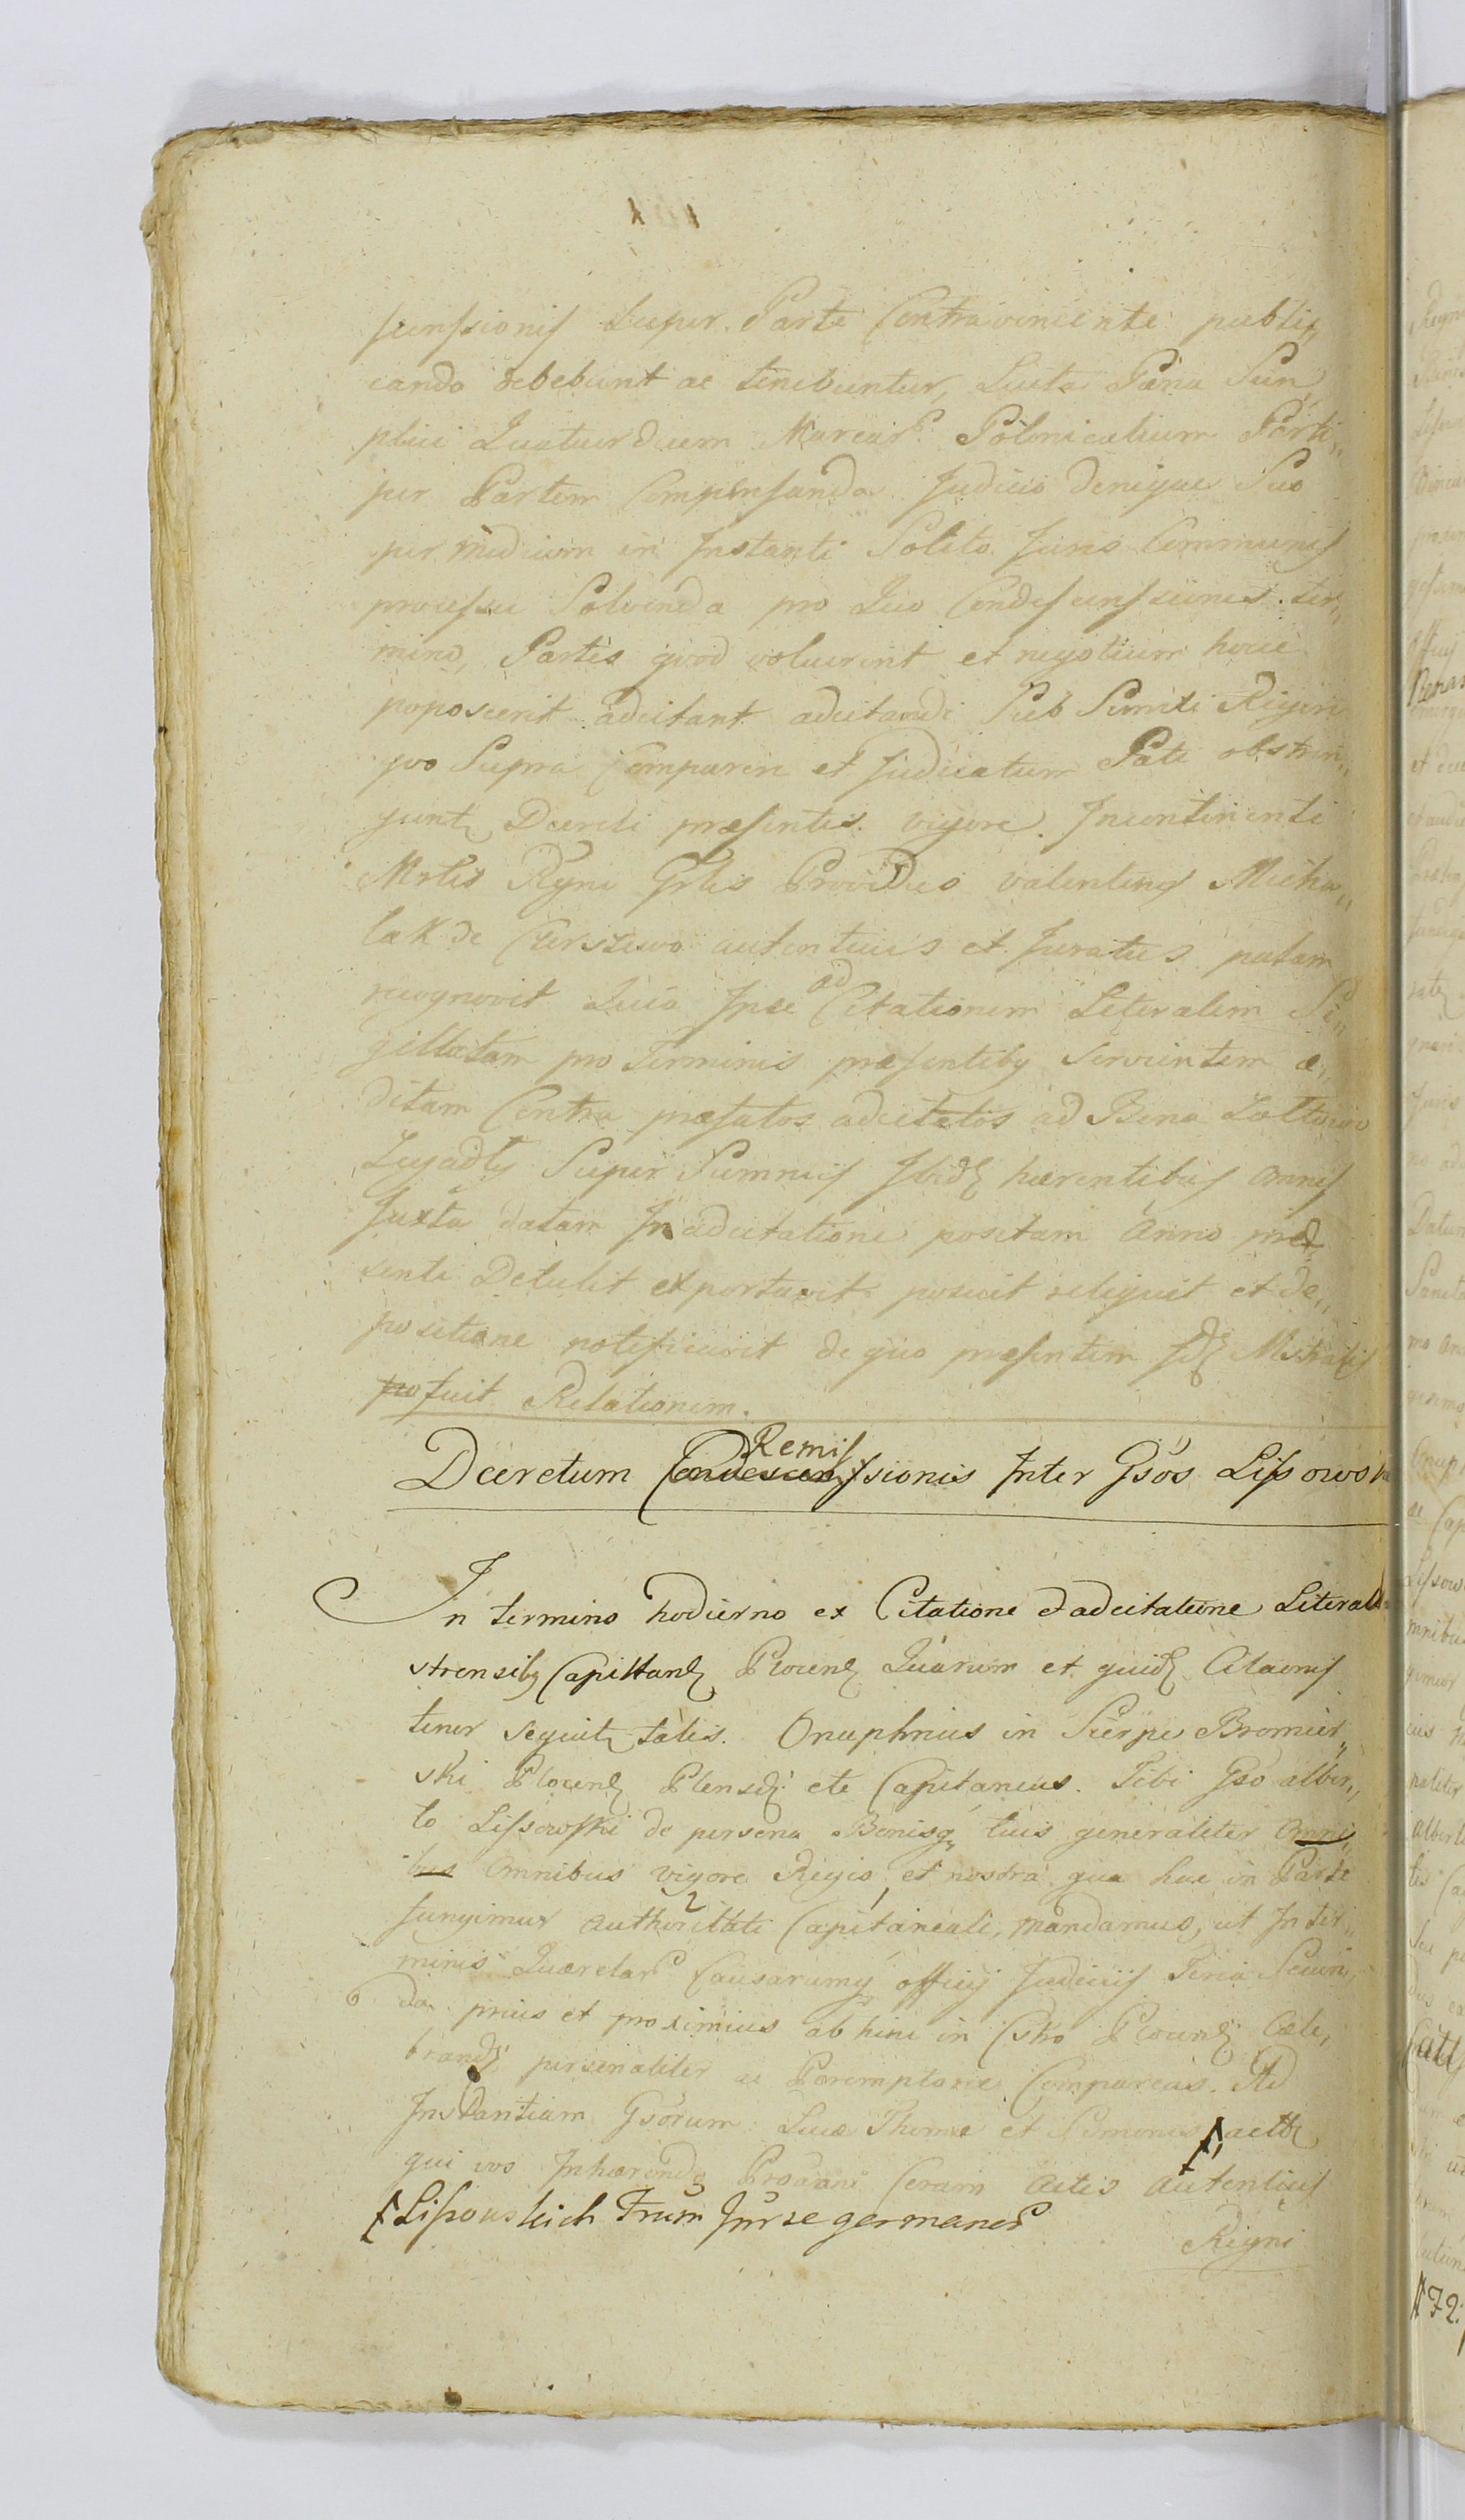 scensionis Super Parte Contraveniente publi„
cando debebunt ac tenebuntur, Luita Pæna Sim„
plici Quatuordecim Marcar. Polonicalium Parti„
per Partem Compensanda Judicio denique Suo
per medium in Instanti Solito Juris Communis
processu Solvenda pro Quo Condescensciones ter„
mino, Partes quod voluerint et negotium hocce
poposcerit adcitant adcitandi Sub Simili Rigore
quo Supra Comparere et Judicatum Pati obstrin„
gunt Decreti præsentis vigore. Incontinenti
Mrlis Regni Gnlis Providus Valentinus Micha„
lak de autenticus et Juratus palam
recognovit Quia Ipse ad Citationem Literalem Si„
gillatam pro Terminis præsentibq Servientem æ„
ditam Contra præfatos adcitatos ad Bona
Super Summis Ibid hærentibus omnes
Juxta datam In adcitatione positam Anno præ
senti Detulit exportavit posuit reliquit et de„
positione notificavit de quo præsentem
fuit Relationem.
Decretum Condescen Remis ssionis Inter Gsos Lissows
In termino hodierno ex Citatione et adcitatione Literal
strensibq Capittanl Plocenl Quarum et quid Citaonis
tenor Sequit talis. Onuphrius in Sierpc Bromier„
ski Plocenl Plensq etc Capitaneus. Tibi Gso Alber„
to Lissowski de persona Bonisq tuis generaliter omni„
bus omnibus vigore Regis, et nostra qua hac in Parte
fungimur Authoritati Capitaneali, mandamus, ut In ter„
minis Quærelar Causarumq officij Judicijs Feria Secun„
da prius et proximius ab hinc in Cstro Plocenl Cele„
brand personaliter ac Peremptorie Compareas. Ad
Instantiam Gsorum Lucæ Thomæ et Simonis
qui vos Inhærendo Coram Actis Autenticis
Lissouskich Frum Inr se germanor
Regni